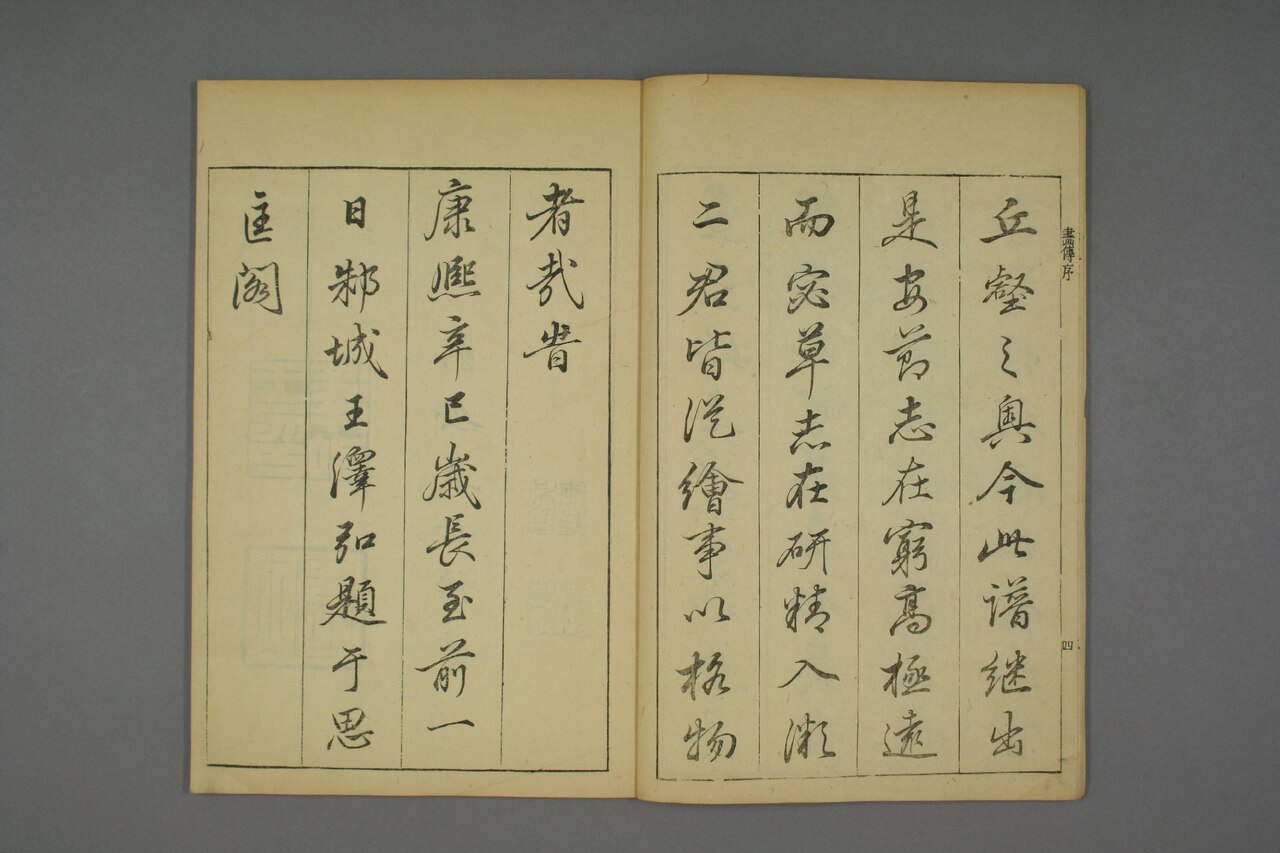 丘壑之奧今此譜繼出
是安節志在窮高極遠
而宓草志在研精入微
二君皆從繪事以格物
者哉旹
康熙辛巳歲長至前一
日邾城王澤弘題于思
匡閣
畫傳序
四